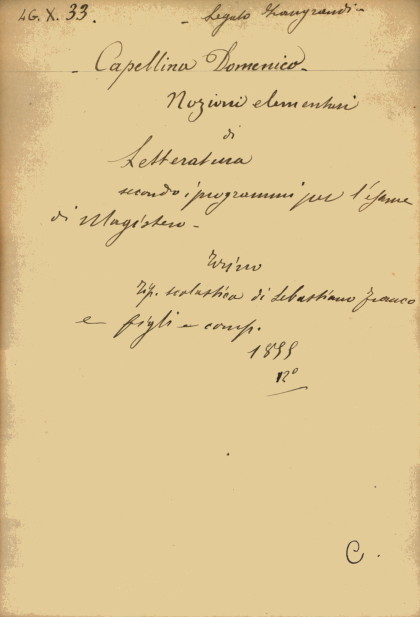 LG. X. 33.
- Legato Zangrandi -
- Capellina Domenico -
Nozioni elementari
di
Letteratura
secondo i programmi per l'esame
di Magistero -
Torino
Tip. scolastica di Sebastiano Franco
e figli e comp.
1855
12º
C.